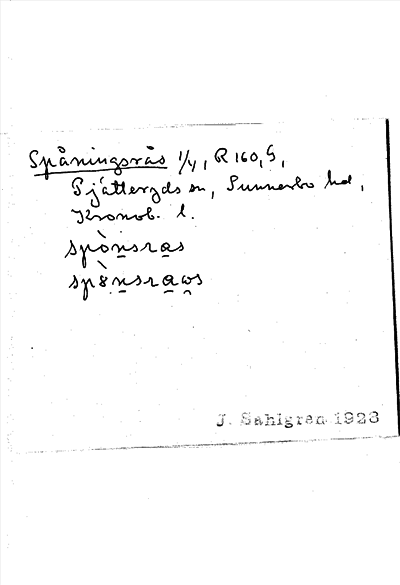 Spåningsrås 1/4, R 160, G,
Pjätteryds sn, Sunnerbo hd,
Kronob. l.
spònsras
sp8̀nsraωs
J. Sahlgren 1923